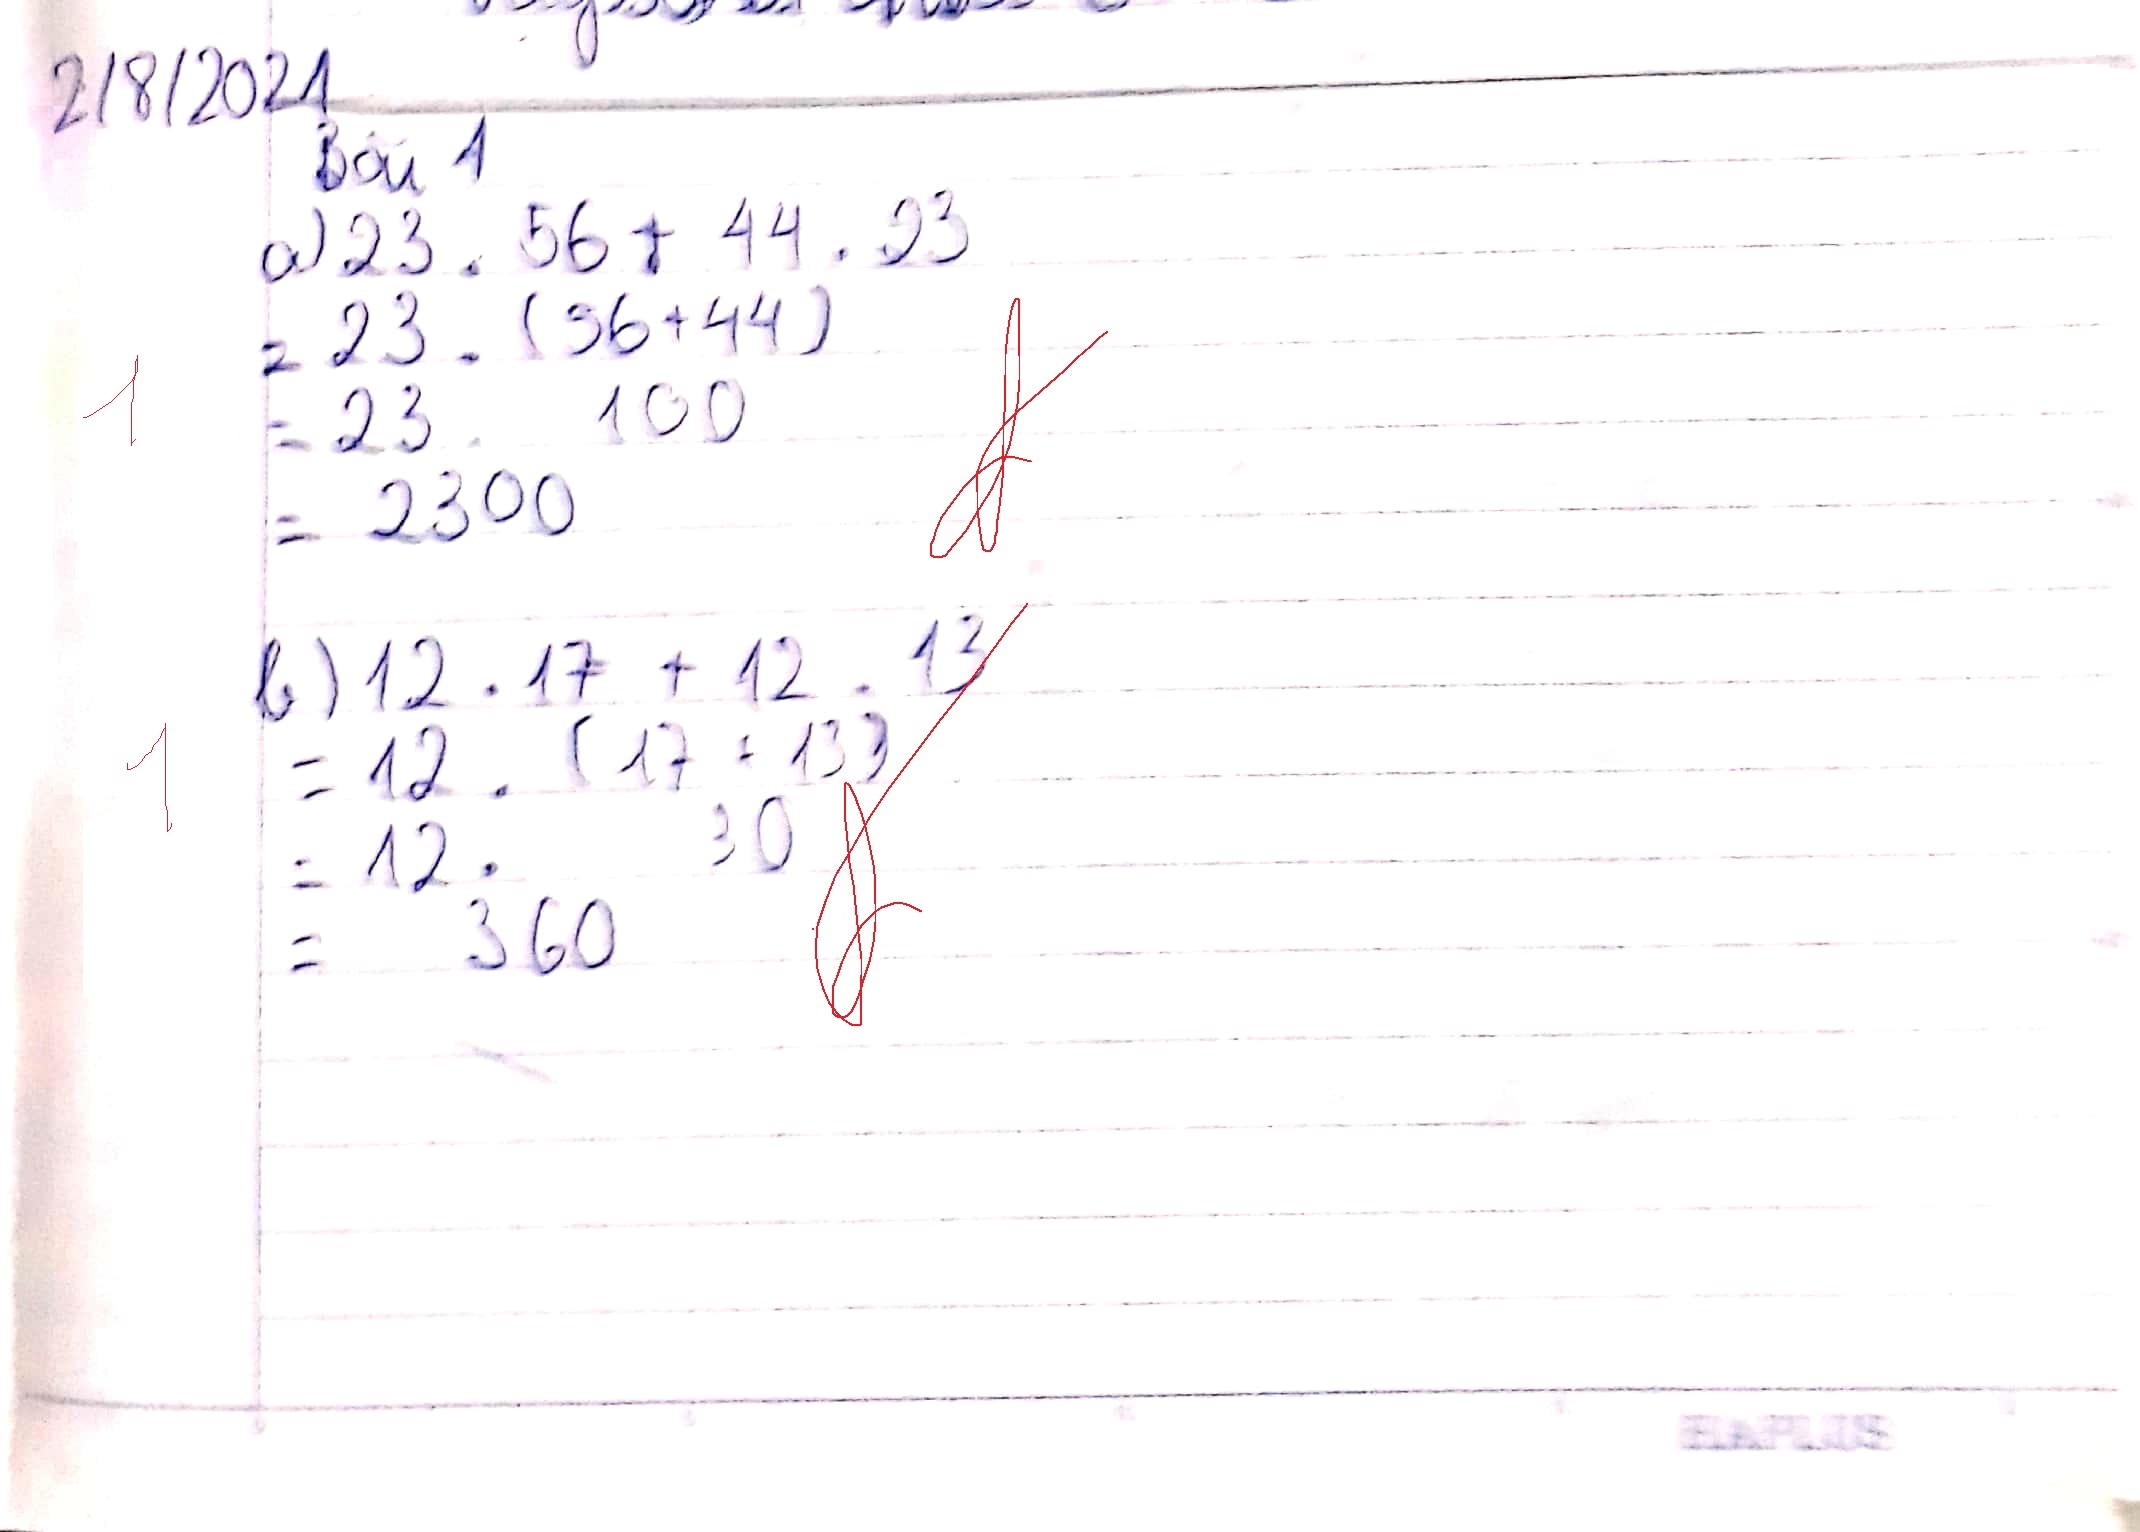 2/8/2021
Bài 1
a) 23 . 56 + 44 . 23
= 23 . (56+44)
= 23 . 100
= 2300
1
b) 12 . 17 + 12 . 13
= 12 . (17 + 13)
= 12 . 30
= 360
1